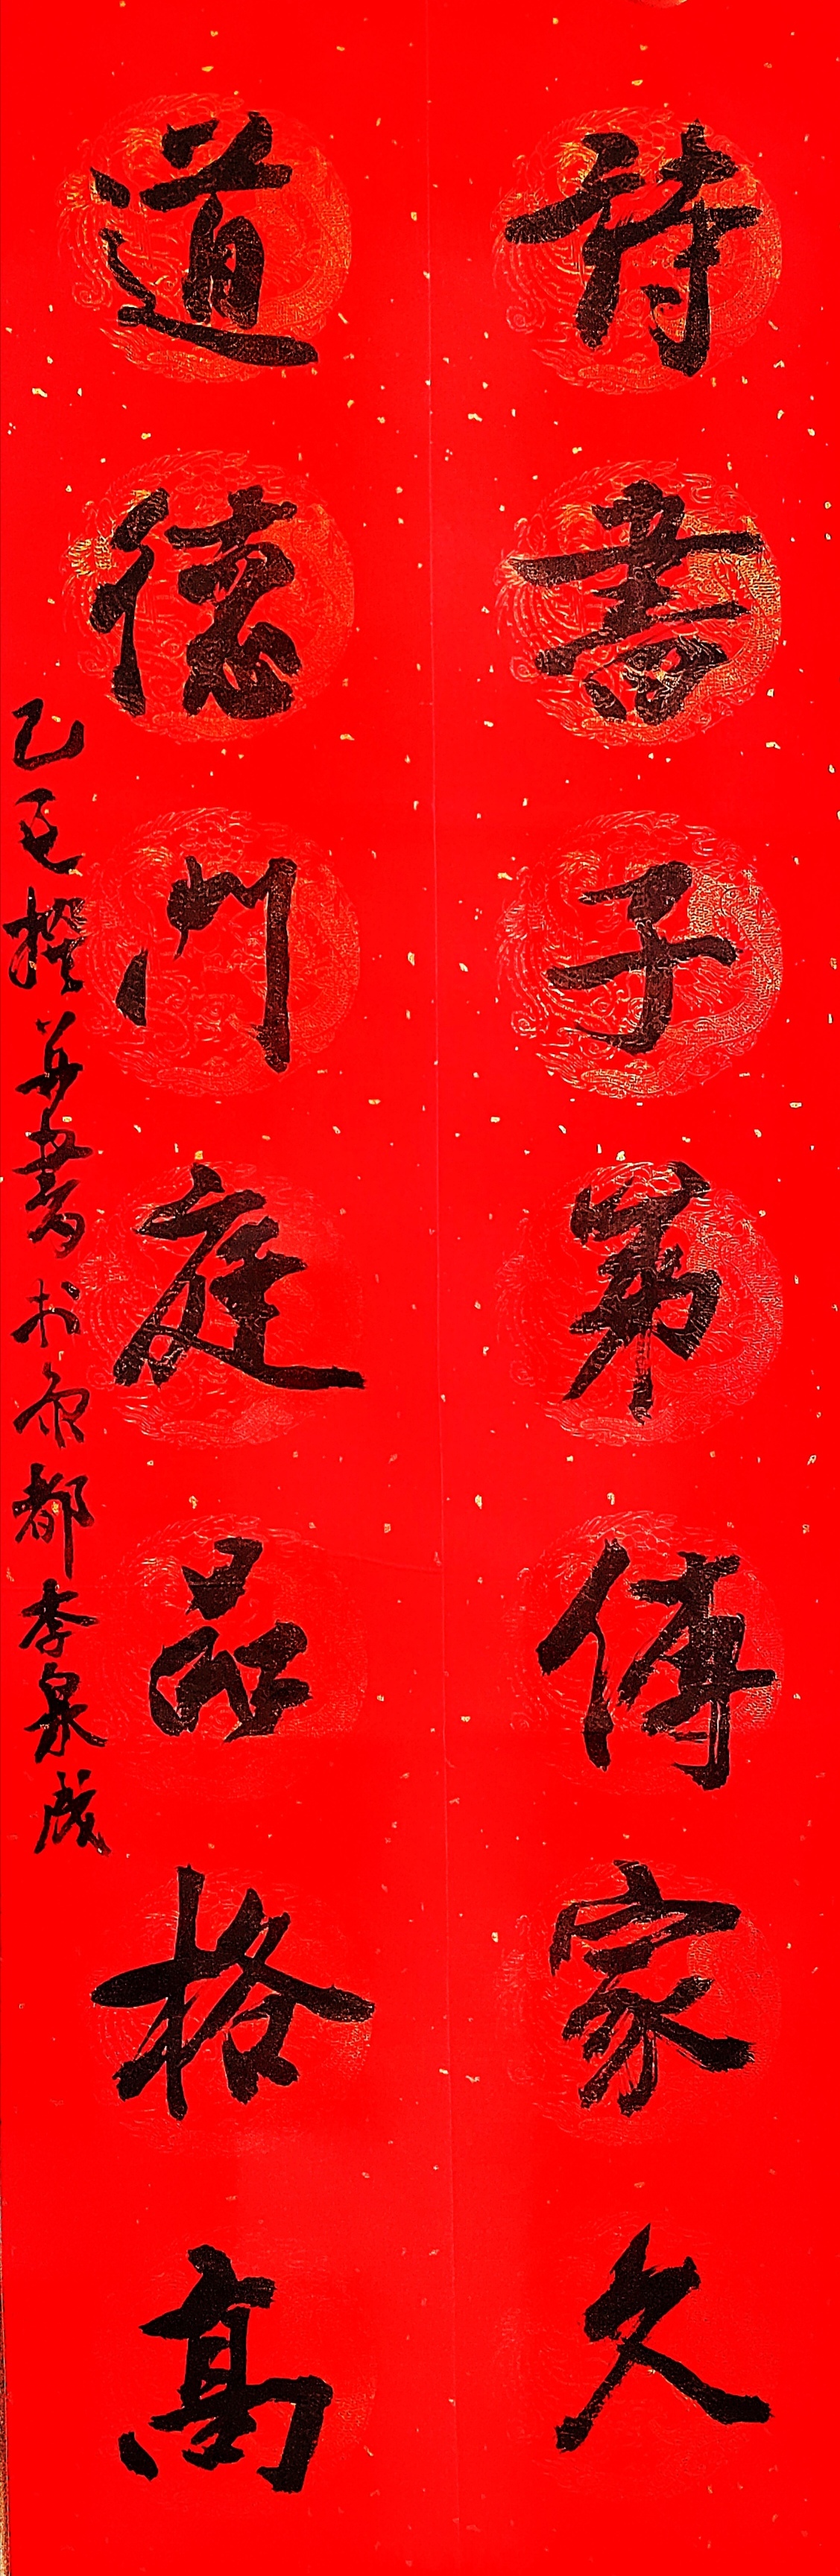 詩書子弟傳家久
道德門庭品格高
乙巳撰并書於京都李泉成